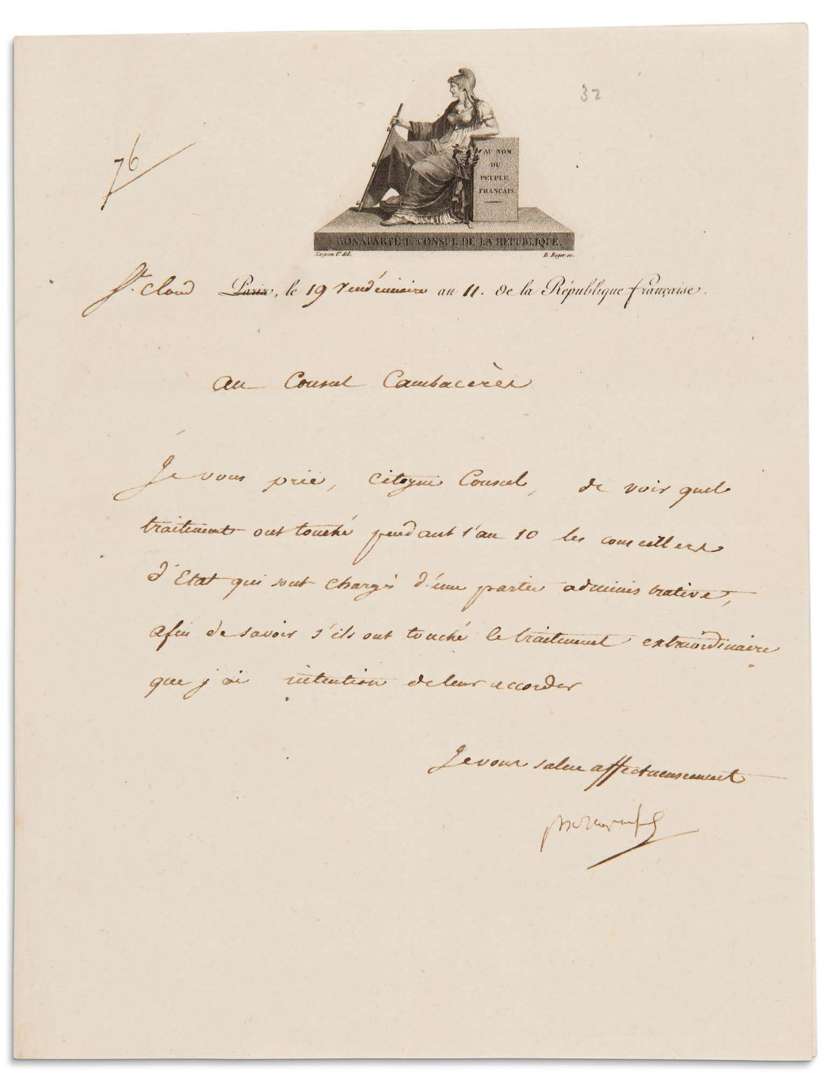 32
76
AU NOM
DU
PEUPLE
FRANÇAIS.
BONAPARTE 1er CONSUL DE LA REPUBLIQUE.
B. Roger sc.
St. Cloud Paris, le 19 Vendémiaire an 11. de la République française.
Au Consul Cambacérès
Je vous prie, citoyen Consul, de voir quel
traitement ont touché pendant l'an 10 les conseillers
d'Etat qui sont chargés d'une partie administrative,
afin de savoir s'ils ont touché le traitement extraordinaire
que j'ai intention de leur accorder
Je vous salue affectueusement